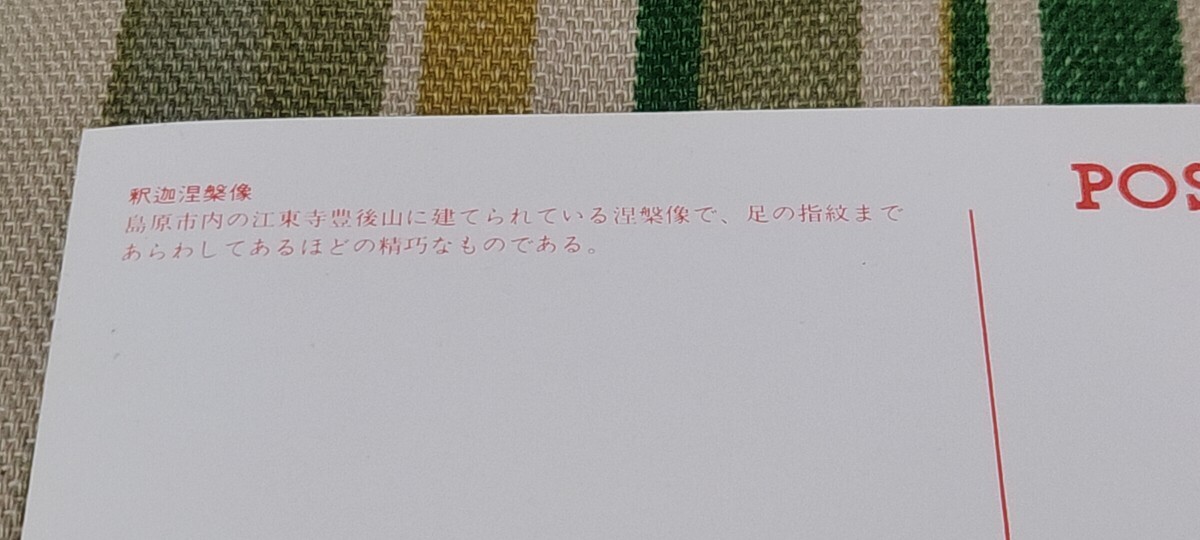 釈迦涅槃像
島原市内の江東寺豊後山に建てられている涅槃像で、足の指紋まで
あらわしてあるほどの精巧なものである。
POS